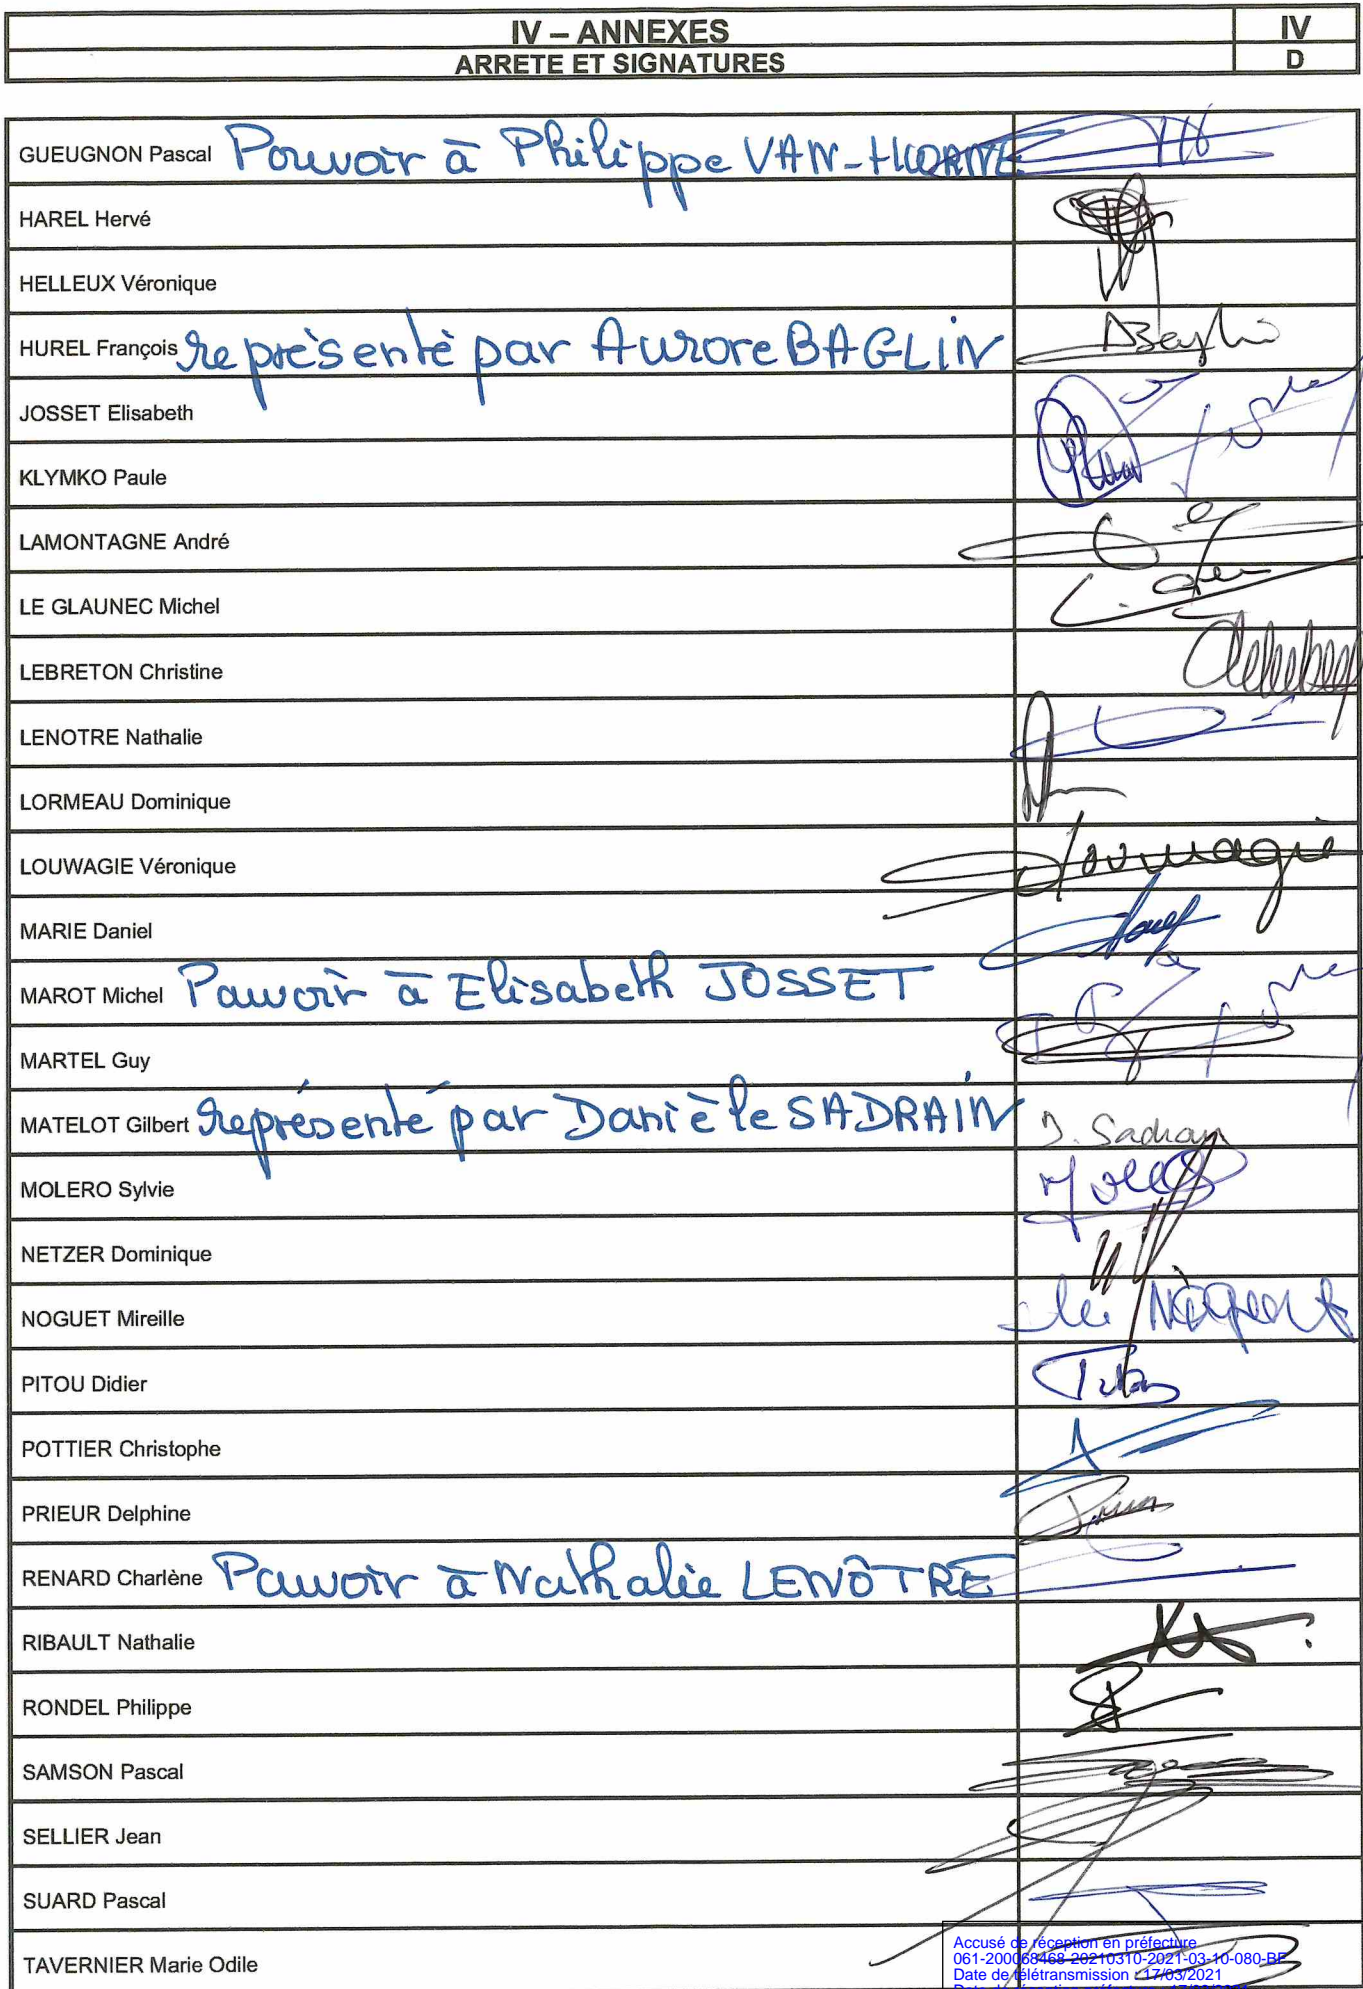 IV – ANNEXES IV
ARRETE ET SIGNATURES D
GUEUGNON Pascal Pouvoir à Philippe VAN-HOORNE
HAREL Hervé
HELLEUX Véronique
HUREL François représenté par Aurore BAGLIN
JOSSET Elisabeth
KLYMKO Paule
LAMONTAGNE André
LE GLAUNEC Michel
LEBRETON Christine
LENOTRE Nathalie
LORMEAU Dominique
LOUWAGIE Véronique
MARIE Daniel
MAROT Michel Pouvoir à Elisabeth JOSSET
MARTEL Guy
MATELOT Gilbert représenté par Danièle SADRAIN
MOLERO Sylvie
NETZER Dominique
NOGUET Mireille
PITOU Didier
POTTIER Christophe
PRIEUR Delphine
RENARD Charlène Pouvoir à Nathalie LENÔTRE
RIBAULT Nathalie
RONDEL Philippe
SAMSON Pascal
SELLIER Jean
SUARD Pascal
TAVERNIER Marie Odile
Accusé de réception en préfecture
061-200068468-20210310-2021-03-10-080-BF
Date de télétransmission : 17/03/2021